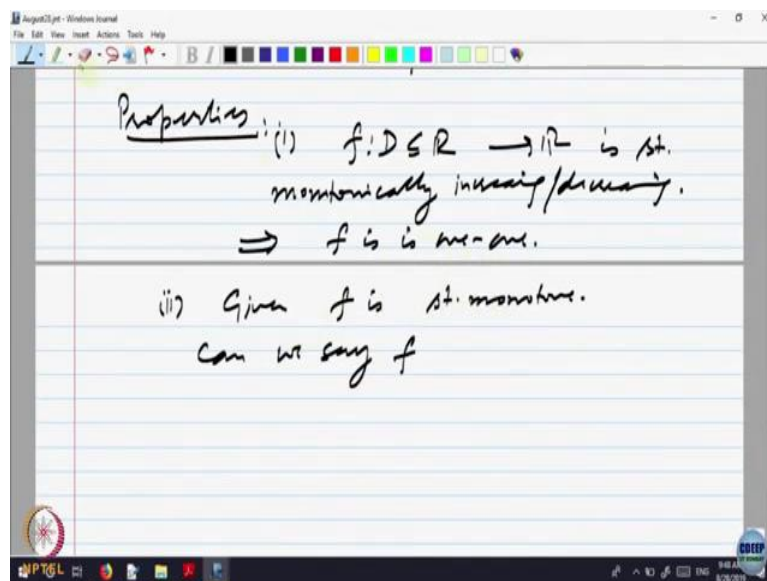 August28.jnt - Windows Journal
File Edit View Insert Actions Tools Help
B I
Properties: (i) f: D ⊆ R → R is st.
monotonically increasing/decreasing.
⇒ f is is one-one.
(ii) Given f is st. monotone.
Can we say f
NPTEL
CDEEP
IIT BOMBAY
ENG
9:48 AM
8/28/2019